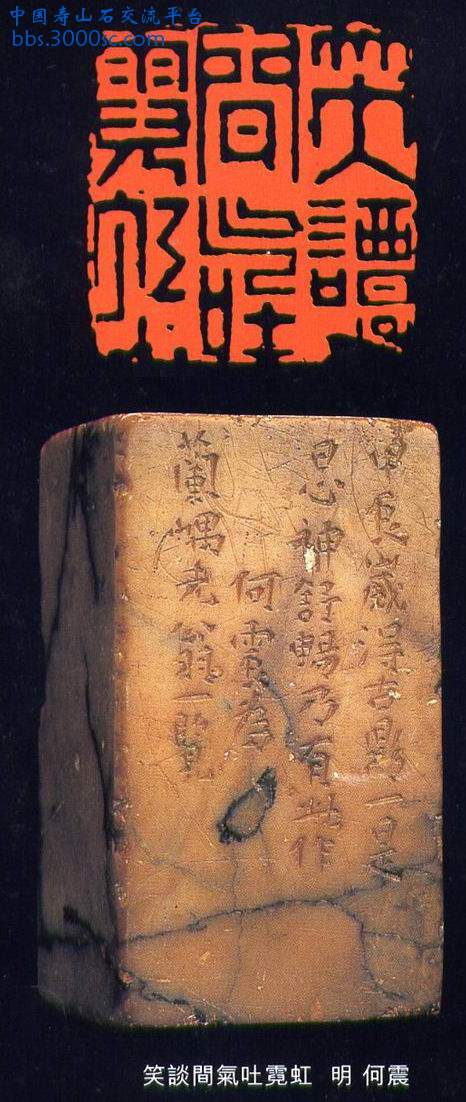 中国寿山石交流平台
bbs.3000sc.com
笑譚
間气吐
霓虹
甲辰歲得古鼎一是
日心神舒暢乃有此作
何震為
蘭嵎老翁一覽
笑談間氣吐霓虹 明 何震